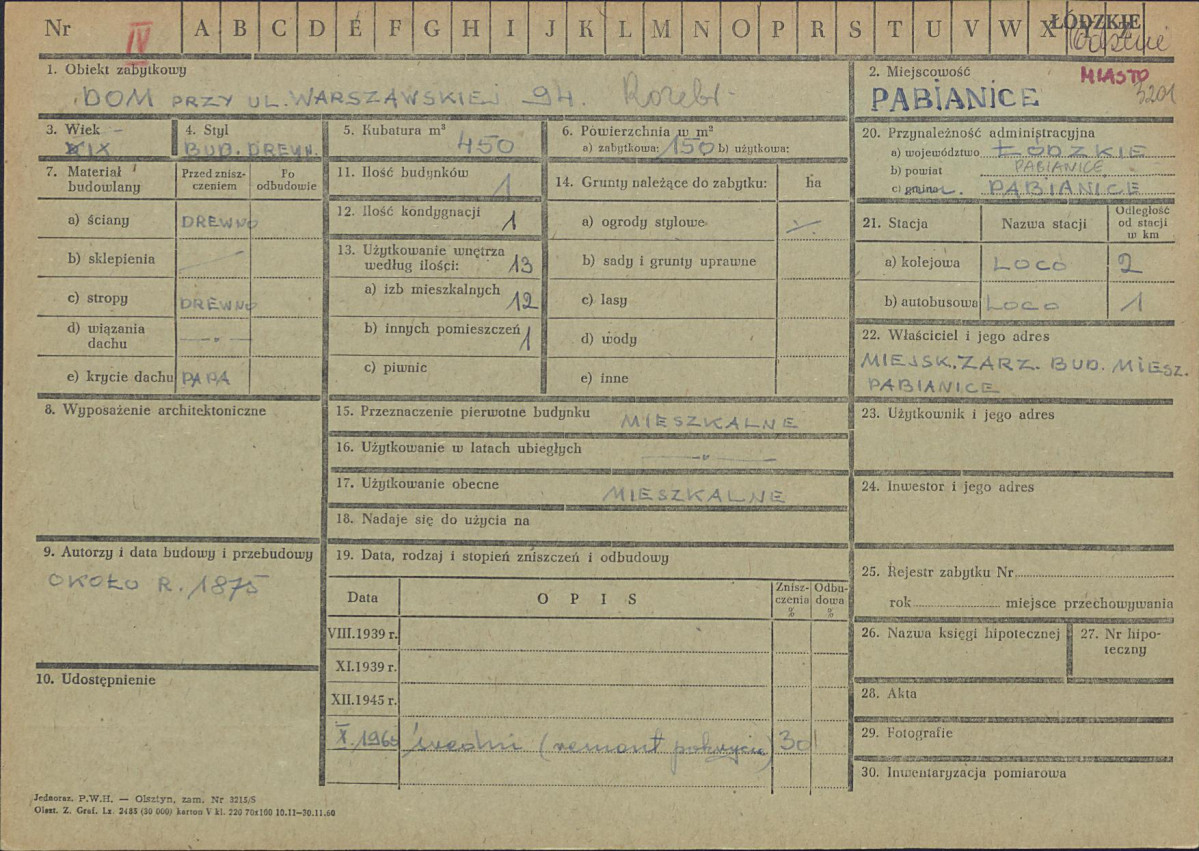 Nr IV A B C D E F G H I J K L M N O P R S T U V W X Y Z ŁÓDZKIE
1. Obiekt zabytkowy
DOM PRZY UL. WARSZAWSKIEJ 94.
2. Miejscowość MIASTO
PABIANICE 5201
3. Wiek
XIX
4. Styl
BUD. DREWN.
5. Kubatura m³
450
6. Powierzchnia w m²
a) zabytkowa: 150 b) użytkowa:
20. Przynależność administracyjna
a) województwo ŁÓDZKIE
b) powiat PABIANICE
c) gmina PABIANICE
7. Materiał budowlany
Przed zniszczeniem
Po odbudowie
a) ściany DREWNO
b) sklepienia —
c) stropy DREWNO
d) wiązania dachu —"—
e) krycie dachu PAPA
11. Ilość budynków
1
12. Ilość kondygnacji
1
13. Użytkowanie wnętrza
według ilości: 13
a) izb mieszkalnych 12
b) innych pomieszczeń 1
c) piwnic
14. Grunty należące do zabytku: ha
a) ogrody stylowe
b) sady i grunty uprawne
c) lasy
d) wody
e) inne
21. Stacja Nazwa stacji Odległość od stacji w km
a) kolejowa LOCO 2
b) autobusowa LOCO 1
22. Właściciel i jego adres
MIEJSK. ZARZ. BUD. MIESZ.
PABIANICE
8. Wyposażenie architektoniczne
15. Przeznaczenie pierwotne budynku
MIESZKALNE
16. Użytkowanie w latach ubiegłych
—"—
17. Użytkowanie obecne
MIESZKALNE
18. Nadaje się do użycia na
23. Użytkownik i jego adres
24. Inwestor i jego adres
9. Autorzy i data budowy i przebudowy
OKOŁO R. 1875
10. Udostępnienie
19. Data, rodzaj i stopień zniszczeń i odbudowy
Data OPIS Zniszczenia % Odbudowa %
VIII.1939 r.
XI.1939 r.
XII.1945 r.
średni (remont pokrycia) 30
25. Rejestr zabytku Nr
rok miejsce przechowywania
26. Nazwa księgi hipotecznej
27. Nr hipoteczny
28. Akta
29. Fotografie
30. Inwentaryzacja pomiarowa
Jednoraz. P.W.H. — Olsztyn, zam. Nr 3215/S
Olszt. Z. Graf. Lz. 2485 (30 000) karton V kl. 220 70x100 10.11—30.11.60